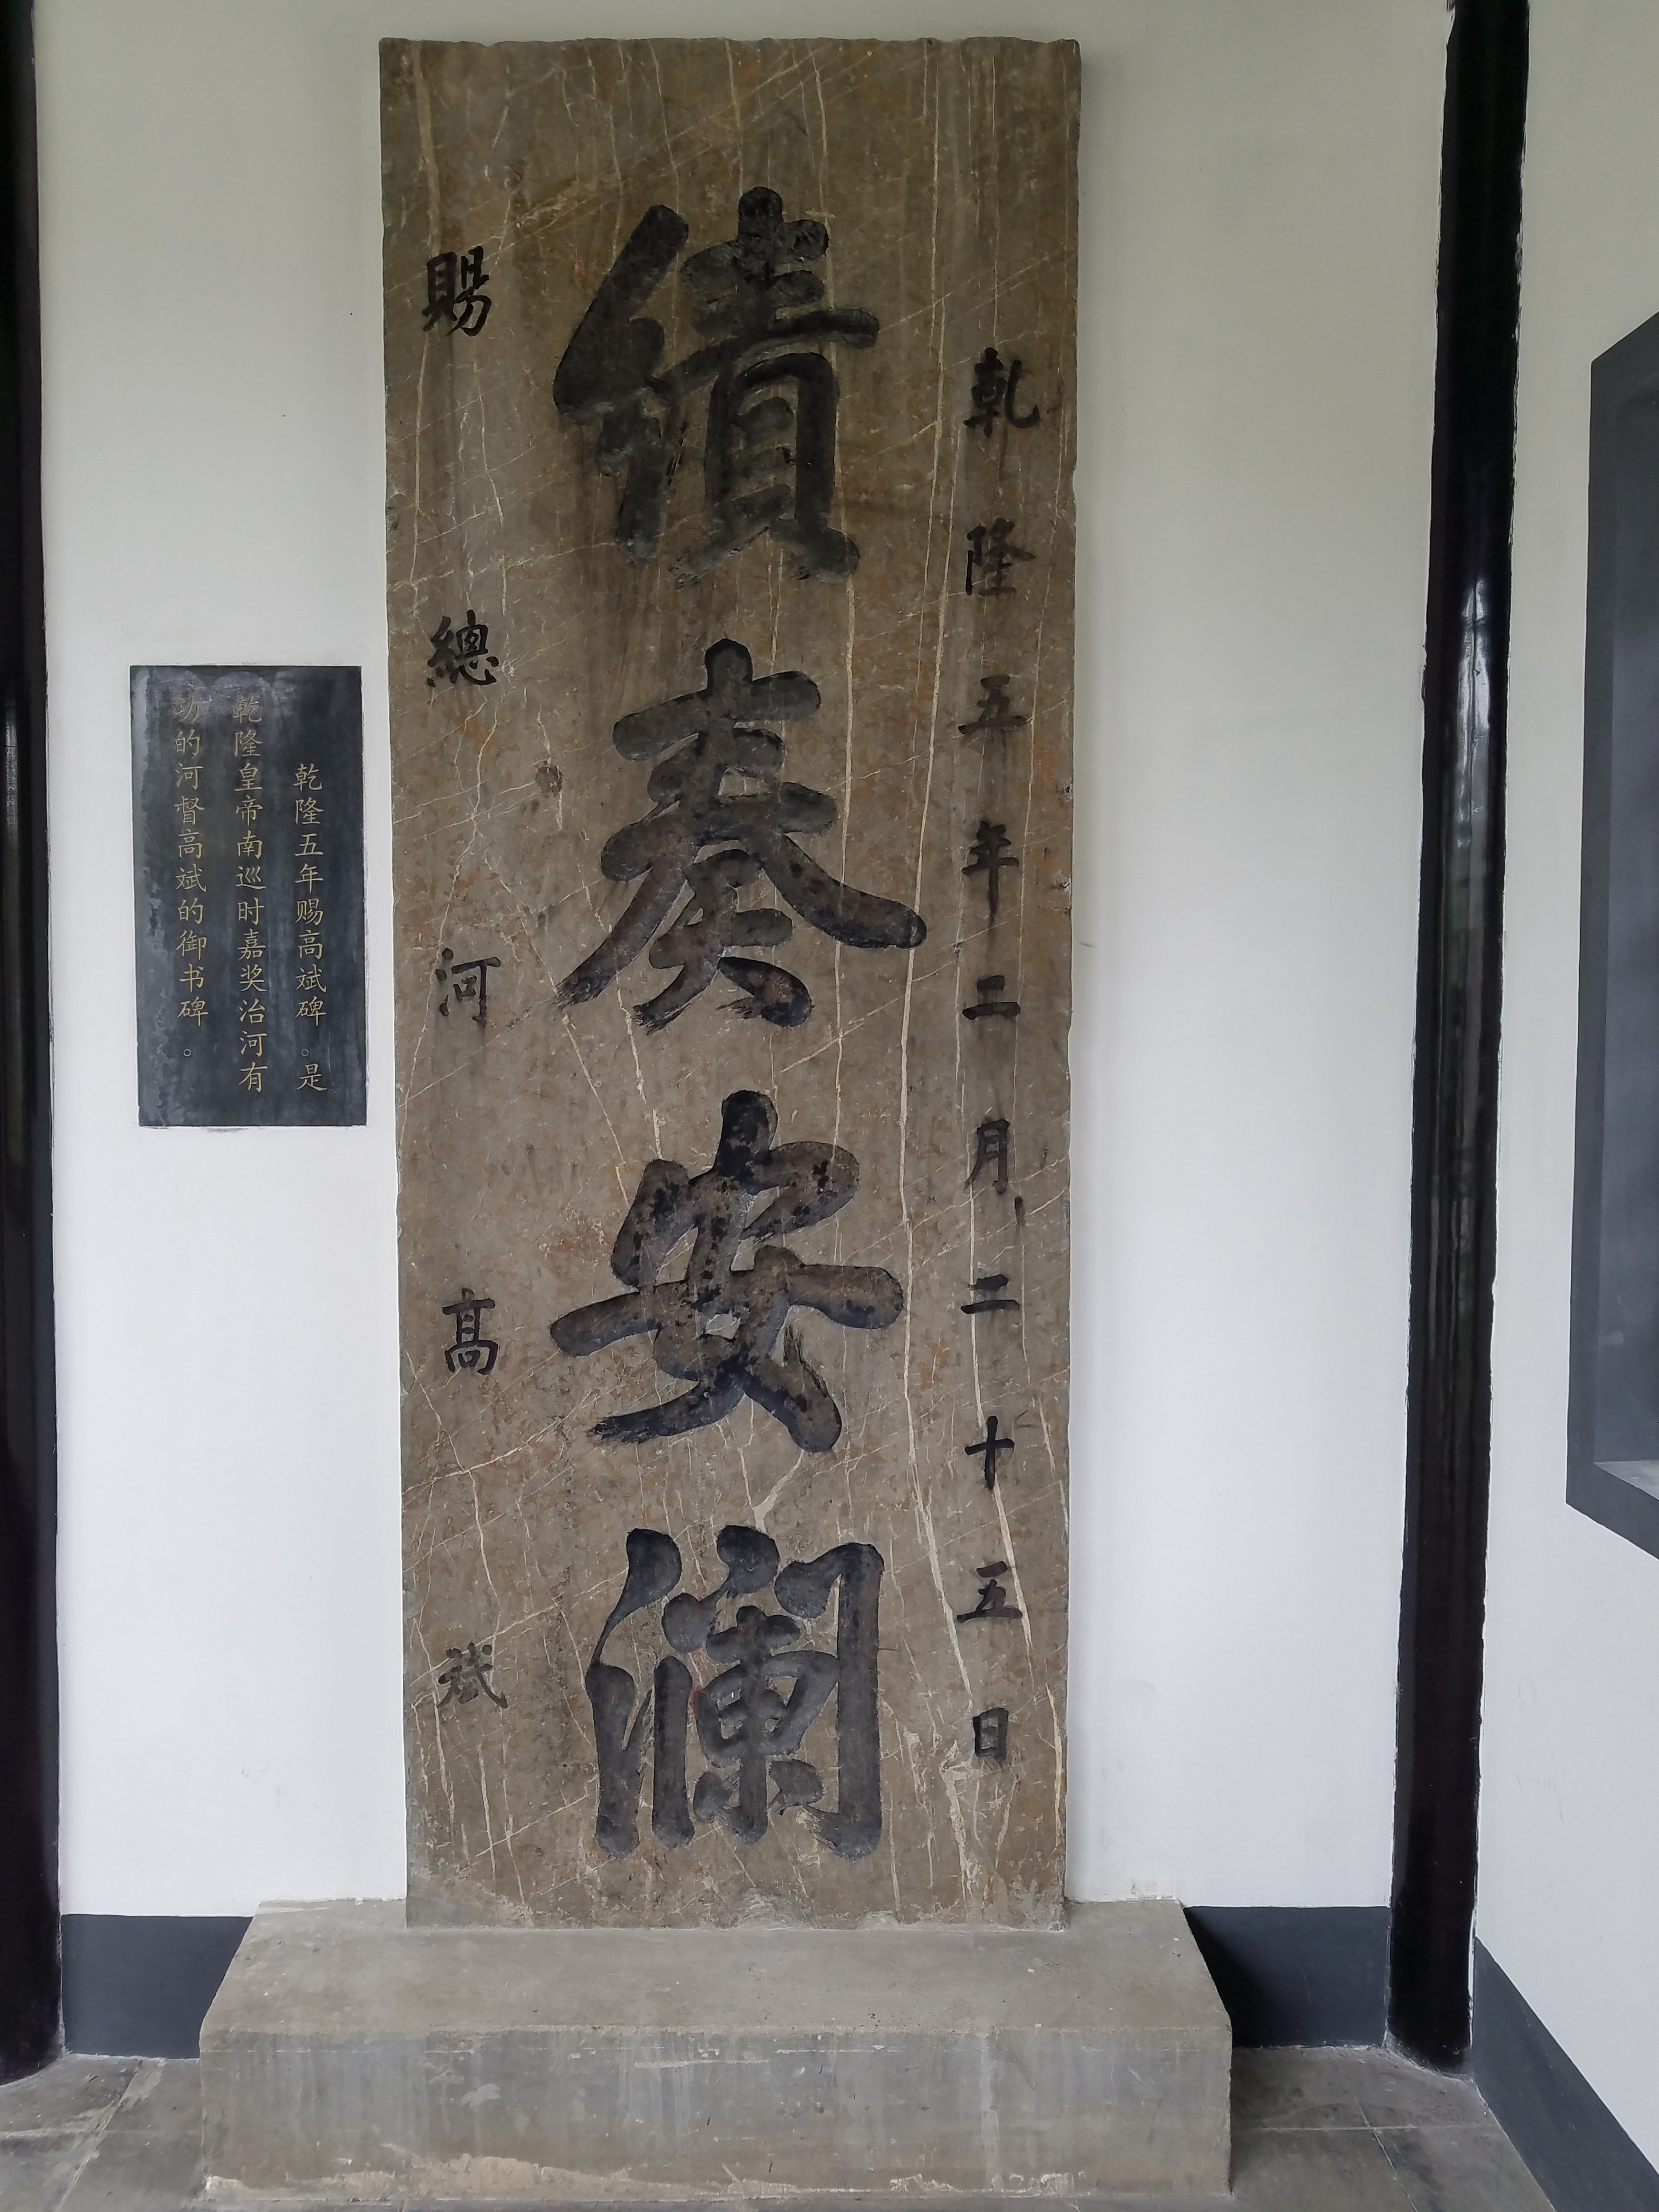 乾隆五年二月二十五日
績奏安瀾
賜總河高斌
乾隆五年赐高斌碑。是
乾隆皇帝南巡时嘉奖治河有
功的河督高斌的御书碑。